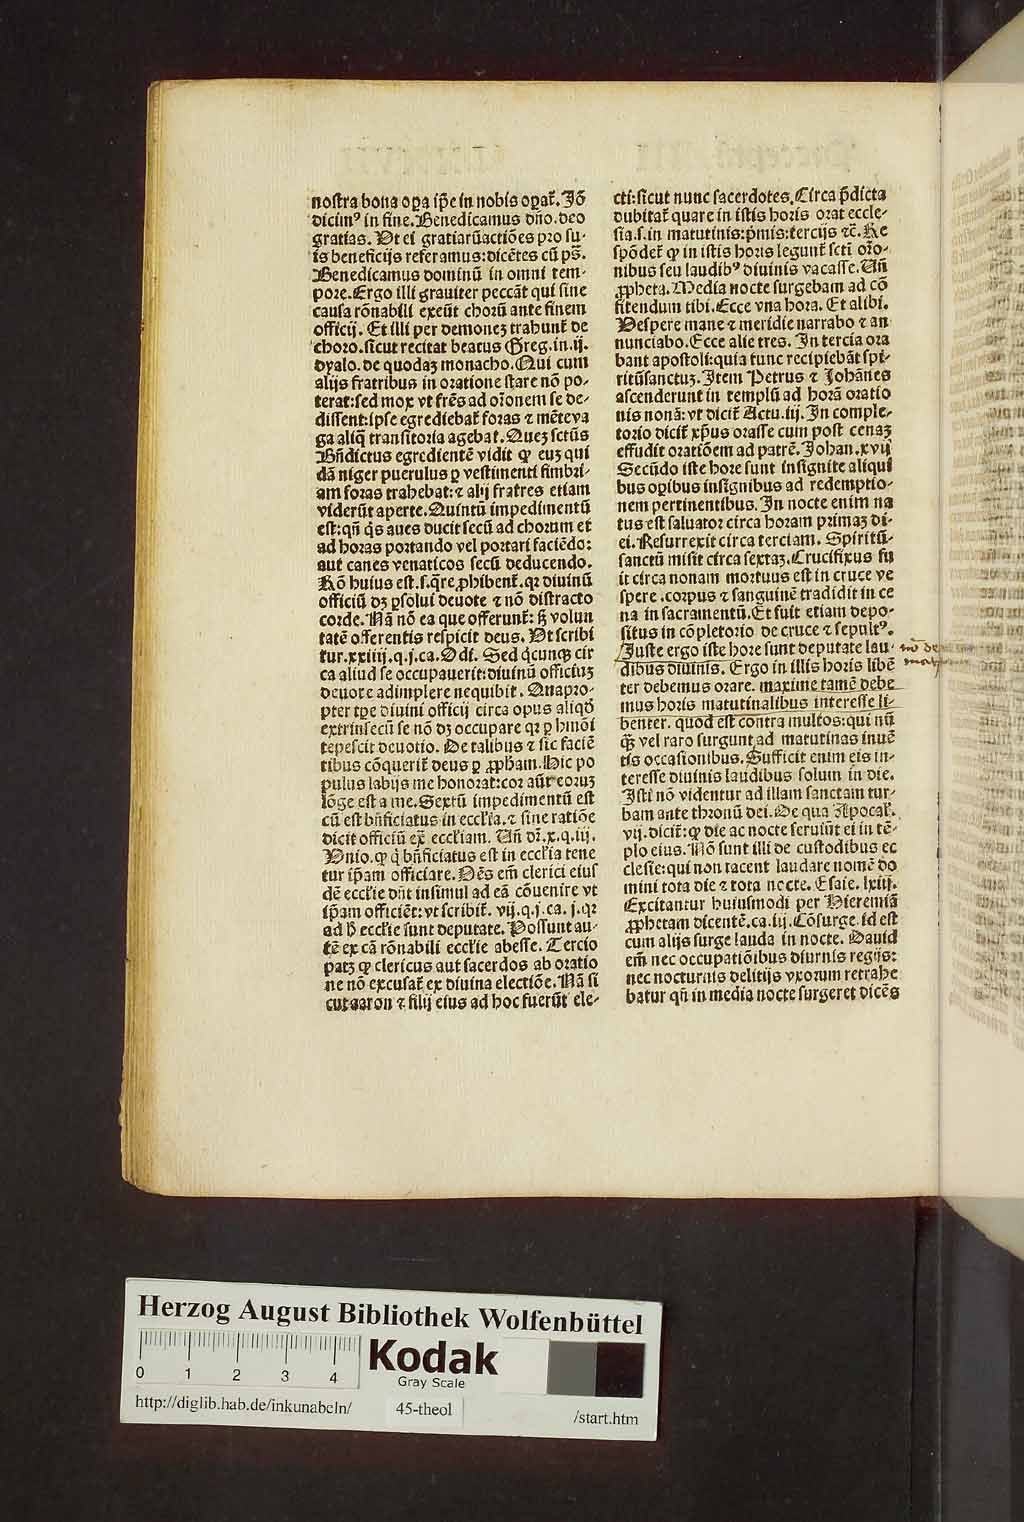 nostra bona oꝑa ip̄e in nobis oꝑat᷑. Iō
dicim⁹ in fine. Benedicamus dn̄o. deo
gratias. Vt ei gratiarūactiōes pro su⸗
is beneficijs referamus: dicētes cū ps̄.
Benedicamus dominū in omni tem⸗
pore. Ergo illi grauiter peccāt qui sine
causa rōnabili exeūt chorū ante finem
officij. Et illi per demoneꝫ trahunt᷑ de
choro. sicut recitat beatus Greg. in. ij.
dyalo. de quodaꝫ monacho. Qui cum
alijs fratribus in oratione stare nō po⸗
terat: sed mox vt frēs ad or̄onem se de⸗
dissent: ipse egrediebat᷑ foras ⁊ mēteva
ga aliq̄ transitoria agebat. Queꝫ sctūs
Bn̄dictus egredientē vidit ꝙ euꝫ qui
dā niger puerulus ꝑ vestimenti fimbri⸗
am foras trahebat: ⁊ alij fratres etiam
viderūt aperte. Quintū impedimentū
est: qn̄ q̄s aues ducit secū ad chorum et
ad horas portando vel portari faciēdo:
aut canes venaticos secū deducendo.
Rō huius est. s. q̄re ꝓhibent᷑. qꝛ diuinū
officiū dꝫ ꝑsolui deuote ⁊ nō distracto
corde. Nā nō ea que offerunt᷑: sꝫ volun
tatē offerentis respicit deus. Vt scribi
tur. xxiiij. q. j. ca. Odi. Sed q̄cunqꝫ cir
ca aliud se occupauerit: diuinū officiuꝫ
deuote adimplere nequibit. Quapro⸗
pter tꝑe diuini officij circa opus aliqḋ
extrinsecū se nō dꝫ occupare qꝛ ꝑ hmōi
tepescit deuotio. De talibus ⁊ sic faciē
tibus cōquerit᷑ deus ꝑ ꝓph̄am. Hic po
pulus labijs me honorat: cor aūt eoruꝫ
lōge est a me. Sextū impedimentū est
cū est bn̄ficiatus in eccl̄ia. ⁊ sine ratiōe
dicit officiū ex̄ eccl̄iam. Vn̄ dr̄. x. q. iij.
Vnio. ꝙ q̇ bn̄ficiatus est in eccl̄ia tene
tur ip̄am officiare. Oēs em̄ clerici eius
dē eccl̄ie dn̄t insimul ad eā cōuenire vt
ip̄am officiēt: vt scribit᷑. vij. q. j. ca. j. qꝛ
ad ḣ eccl̄ie sunt deputate. Possunt au⸗
tē ex cā rōnabili eccl̄ie abesse. Tercio
patꝫ ꝙ clericus aut sacerdos ab oratio
ne nō excusat᷑ ex diuina electiōe. Nā si
cut aaron ⁊ filij eius ad hoc fuerūt ele⸗
cti: sicut nunc sacerdotes. Circa p̄dicta
dubitat᷑ quare in istis horis orat eccle⸗
sia. s. in matutinis: p̄mis: tercijs ⁊c̄. Re
spōdet᷑ ꝙ in istis horis legunt᷑ scti or̄o⸗
nibus seu laudib⁹ diuinis vacasse. Vn̄
ꝓpheta. Media nocte surgebam ad cō
fitendum tibi. Ecce vna hora. Et alibi.
Vespere mane ⁊ meridie narrabo ⁊ an
nunciabo. Ecce alie tres. In tercia ora
bant apostoli: quia tunc recipiebāt spi⸗
ritūsanctuꝫ. Item Petrus ⁊ Johānes
ascenderunt in templū ad horā oratio
nis nonā: vt dicit᷑ Actu. iij. In comple⸗
torio dicit᷑ xp̄us orasse cum post cenaꝫ
effudit oratiōem ad patrē. Johan. xvij
Secūdo iste hore sunt insignite aliqui
bus oꝑibus insignibus ad redemptio⸗
nem pertinentibus. In nocte enim na
tus est saluator circa horam primaꝫ di⸗
ei. Resurrexit circa terciam. Spiritū⸗
sanctū misit circa sextaꝫ. Crucifixus fu
it circa nonam mortuus est in cruce ve
spere. corpus ⁊ sanguinē tradidit in ce
na in sacramentū. Et fuit etiam depo⸗
situs in cōpletorio de cruce ⁊ sepult⁹.
Juste ergo iste hore sunt deputate lau⸗
dibus diuinis. Ergo in illis horis libē
ter debemus orare. maxime tamē debe
mus horis matutinalibus interesse li⸗
benter. quod est contra multos: qui nū
qꝫ vel raro surgunt ad matutinas inuē
tis occasionibus. Sufficit enim eis in⸗
teresse diuinis laudibus solum in die.
Isti nō videntur ad illam sanctam tur⸗
bam ante thronū dei. De qua Apocal̄.
vij. dicit᷑: ꝙ die ac nocte seruiūt ei in tē⸗
plo eius. Nō sunt illi de custodibus ec
clesie: qui non tacent laudare nomē do
mini tota die ⁊ tota nocte. Esaie. lxiij.
Excitantur huiusmodi per Hieremiā
ꝓphetam dicentē. ca. iij. Cōsurge. id est
cum alijs surge lauda in nocte. Dauid
em̄ nec occupatiōibus diurnis regijs:
nec nocturnis delitijs vxorum retrahe
batur qn̄ in media nocte surgeret dicēs
Herzog August Bibliothek Wolfenbüttel
0 1 2 3 4
Kodak
Gray Scale
http://diglib.hab.de/inkunabeln/
45-theol
/start.htm